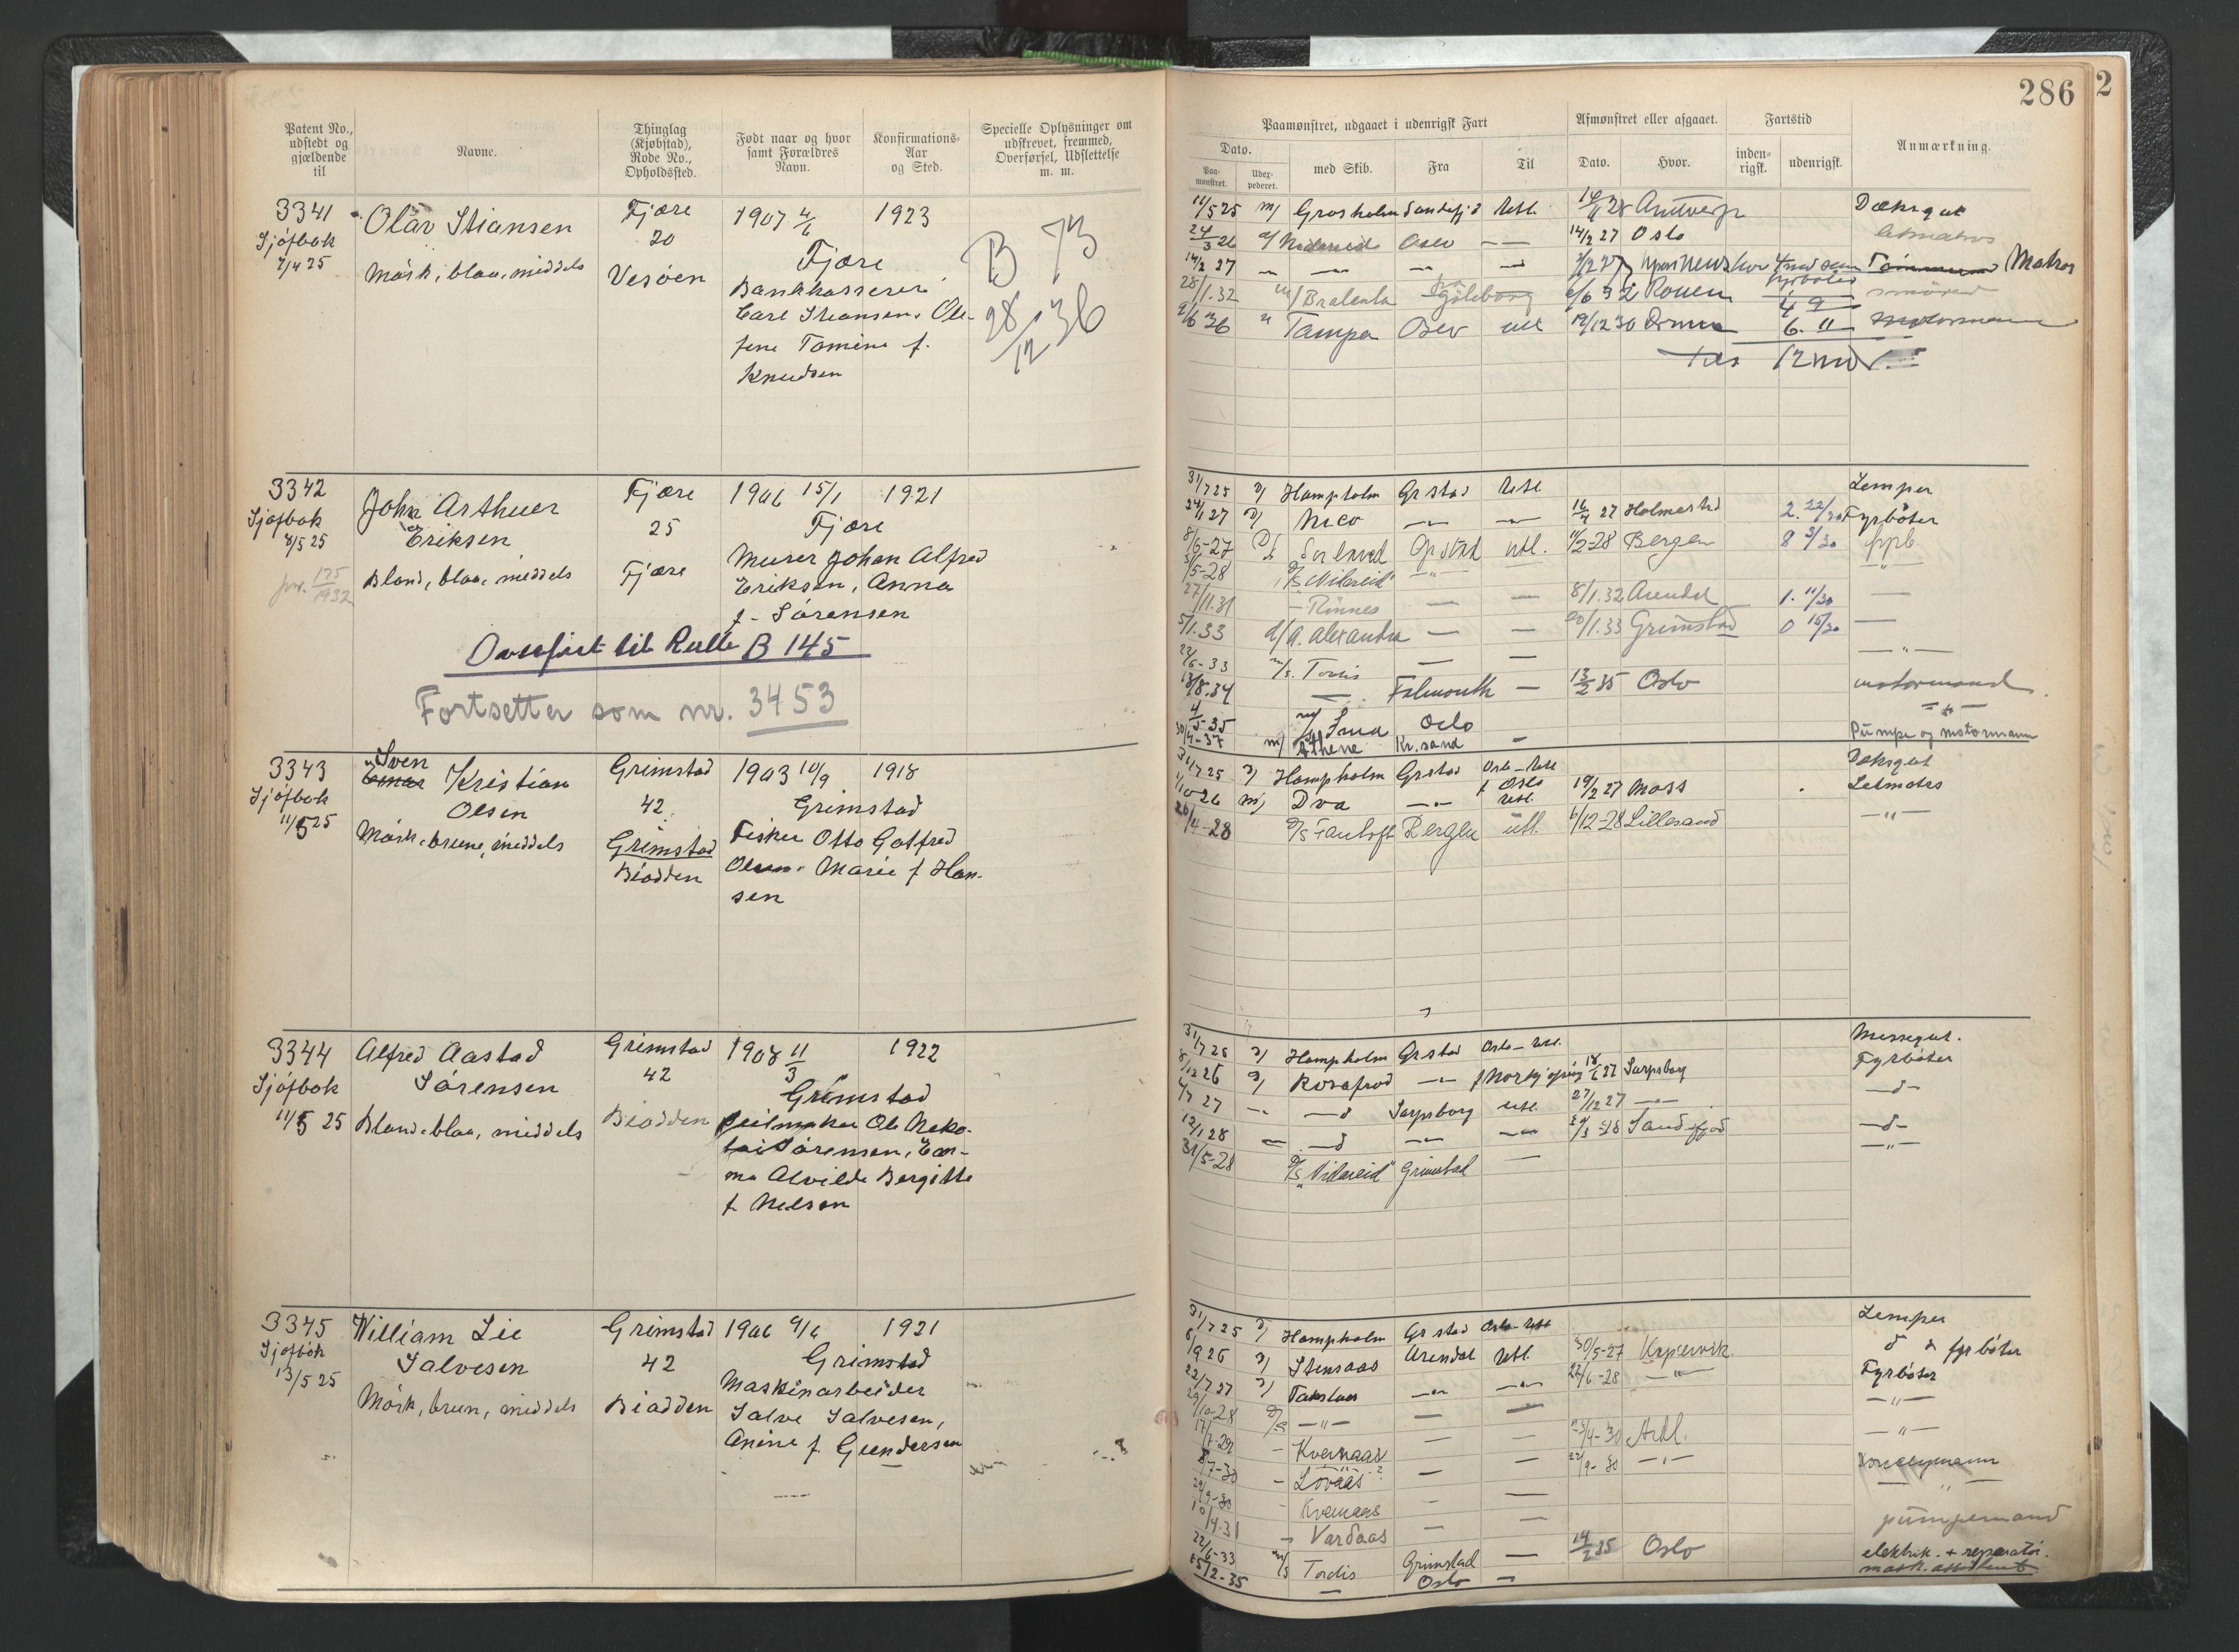 286
2
Patent No., udstedt og gjældende til
Navne.
Thinglag (Kjøbstad), Rode No., Opholdssted.
Født naar og hvor samt Forældres Navn.
Konfirmations-Aar og Sted.
Specielle Oplysninger om udskrevet, fremmed, Overførsel, Udslettelse m. m.
Paamønstret, udgaaet i udenrigsk Fart
Afmønstret eller afgaaet.
Fartstid
Anmærkning.
Dato.
Paa-mønstret.
Udex-pederet.
med Skib.
Fra
Til
Dato.
Hvor.
inden-rigsk.
udenrigsk.
3341
Sjøfbok
7/4 25
Olav Stiansen
Mørk, blaa, middels
Fjære
20
Vesøen
1907 4/6
Fjære
Bankkasserer
Carl Stiansen, Ole-
fine Tomine f.
Knudsen
1923
B 73
28/12 36
11/5 25 m/ Grosholm Sandefjd Utl. 28 Antwerp Dæksgut
24/3 26 Oslo 14/2 27 Oslo Letmatros
14/2 27 Matros
28/1.32 m/ Bralanta Göteborg 2/6 32 Rouen
2/6 36 Tampa Oslo utl 19/12 30 6. 11 Motormann
12 md
3342
Sjøfbok
8/5 25
175/1932
John Arthur
Eriksen
Blond, blaa, middels
Fjære
25
Fjære
1906 15/1
Fjære
Murer Johan Alfred
Eriksen, Anna
f. Sørensen
1921
Overført til Rulle B 145
Fortsetter som nr. 3453
31/7 25 D/ Hampholm Grstad Utl. Lemper
24/1 27 D/ Nico 27 Holmestrd 2. 22/30 Fyrbøter
8/6-27 Grstad utl. 1/2-28 Bergen 8 fyrb.
3/5-28 D/S "Vilareid" — " —
27/11.31 — Rønnes — — 8/1.32 Arendal 1. 11/30 —
5/1.33 d/ A. Alexandra — — 20/1.33 Grimstad 0 15/30 —
22/6-33 m/s. Tordis — — — " —
18/8.34 — Falmouth — 13/2 35 Oslo motormand
4/5-35 Oslo
30/4-37 m/ Athene Kr.sand — Pumpe og motormann
3343
Sjøfbok
11/5 25
Sven
Einar Kristian
Olsen
Mørk, brune, middels
Grimstad
42
Grimstad
Biodden
1903 10/9
Grimstad
Fisker Otto Gotfred
Olsen, Marie f. Han-
sen
1918
31/7 25 D/ Hampholm Grstad Oslo-Utl. Dæksgut
1/10 26 m/ Dva Oslo Utl. 19/2 27 Moss Letmatrs
26/4-28 D/S Fantoft Bergen utl. 6/12-28 Lillesand — " —
3344
Sjøfbok
11/5 25
Alfred Aastad
Sørensen
Blond, blaa, middels
Grimstad
42
Biodden
1908 11/3
Grimstad
Seilmaker Ole Niko-
lai Sørensen, Em-
ma Alvilde Bergitte
f. Nelson
1922
31/7 25 D/ Hampholm Grstad Oslo-Utl. Messegut.
8/12 26 D/ Rosafrod Norkjøping 18/6 27 Sarpsborg Fyrbøter
4/7 27 Sarpsborg utl. 27/12 27 — d —
12/1 28 28 Sandefjod — d —
31/5-28 D/S "Vilareid" Grimstad — — " —
3345
Sjøfbok
13/5 25
William Lie
Salvesen
Mørk, brun, middels
Grimstad
42
Biodden
1906 9/6
Grimstad
Maskinarbeider
Salve Salvesen,
Anine f. Gundersen
1921
31/7 25 D/ Hampholm Grstad Oslo-Utl Lemper
8/9 26 D/ Stensaas Arendal Utl. 30/5-27 Kopervik d & fyrbøter
22/7 27 D/ 22/6-28 — " — Fyrbøter
29/10-28 D/S — " — — — — " —
17/7-29 — Kvernaas — — 23/4-30 Ardl. — " —
8/7-30 — Lövaas ? — — 22/9-30 — " — Donkeymann
29/9-30 — Kvernaas — — — " —
10/4.31 — Vardaas — — pumpemand
22/6-33 m/s Tordis Grimstad — 14/2 35 Oslo elektrik. + reparatør.
15/2-35 — Oslo — mask. assistent